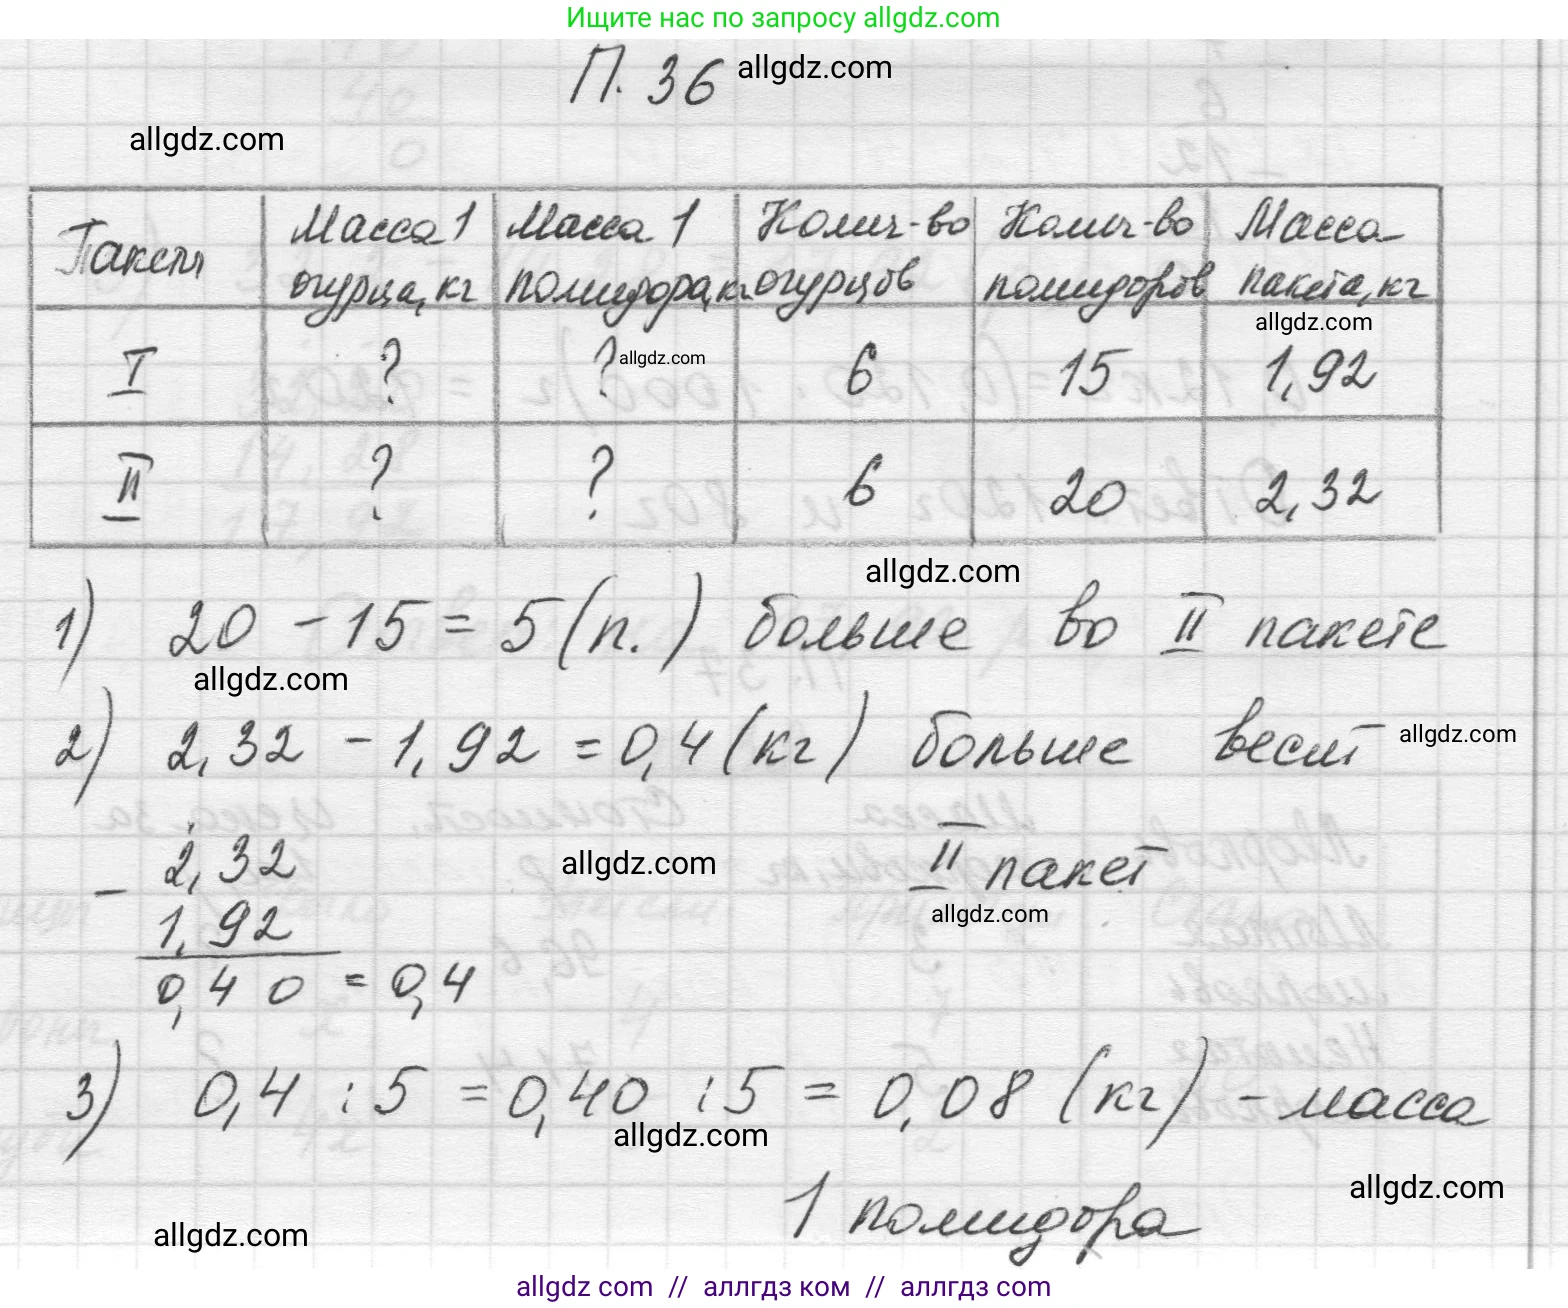 Ищите нас по запросу allgdz.com
П. 36
allgdz.com
allgdz.com
Пакеты
Масса 1 огурца, кг
Масса 1 помидора, кг
Колич-во огурцов
Колич-во помидоров
Масса пакета, кг
allgdz.com
I ? ? 6 15 1,92
allgdz.com
II ? ? 6 20 2,32
allgdz.com
1) 20 - 15 = 5 (п.) больше во II пакете
allgdz.com
2) 2,32 - 1,92 = 0,4 (кг) больше весит
allgdz.com
II пакет
allgdz.com
allgdz.com
- 2,32
1,92
0,40 = 0,4
3) 0,4 : 5 = 0,40 : 5 = 0,08 (кг) - масса
allgdz.com
1 помидора
allgdz.com
allgdz.com
allgdz com // аллгдз ком // аллгдз com